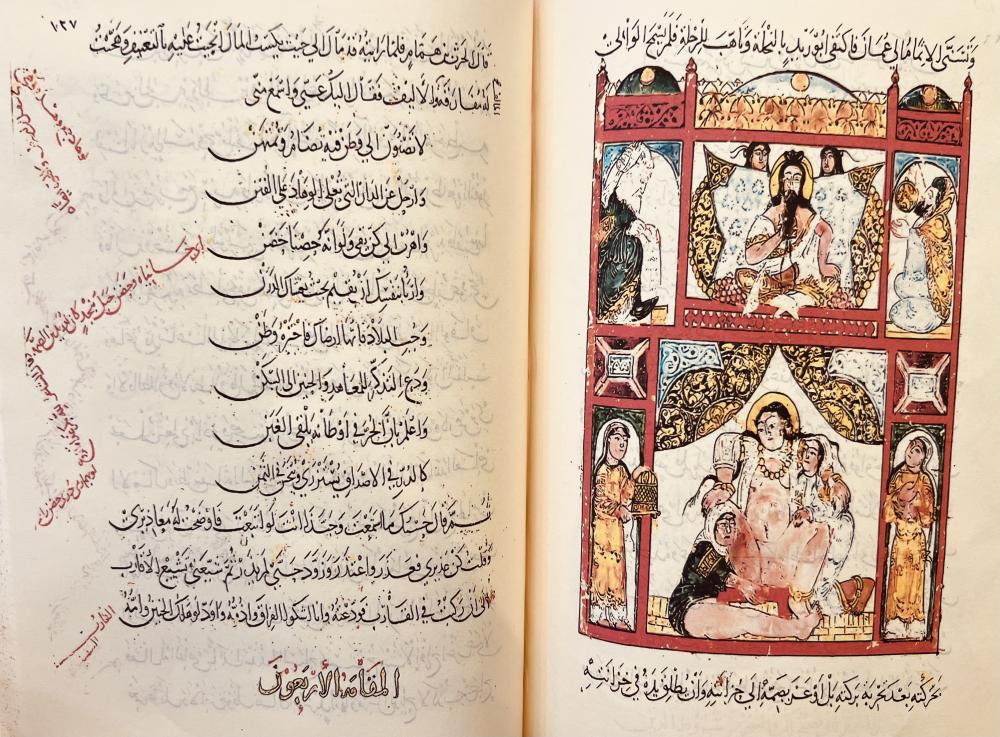 وتسنى الاتمام الى عمان فاكتفى ابو زيد بالنحلة وتاهب للرحلة فلم يسمح الوالي
بحركته بعد تجربة بركته بل اوعز بضمه الى حزانته وان تطلق يده في خزانته
قال الحرث بن همام فلما رايته قد مال الى حيث يكتسب المال انحيت عليه بالتعنيف وهجنت
له مفارقة المالف والاليف فقال اليك عني واسمع مني
لا تصبون الى وطن فيه تضام وتمتهن
وارحل عن الدار التي تعلي الوهاد على القنن
واهرب الى كن يقي ولو انه حضنا حضن
واربا بنفسك ان تقيم بحيث يغشاك الدرن
وجب البلاد فايها ارضاك فاختره وطن
ودع التذكر للمعاهد والحنين الى السكن
واعلم بان الحر في اوطانه يلقى الغبن
كالدر في الاصداف يستزرى ويبخس في الثمن
ثم قال حسبك ما استمعت وحبذا انت لو اتبعت فاوضحت له معاذيري
وقلت كن عذيري فعذر واعتذر وزود حتى لم يذر ثم شيعني تشييع الاقارب
الى ان ركبت في القارب فودعته وانا اشكو الفراق واذمه واود لو هلك الجنين وامه
المقامة الأربعون